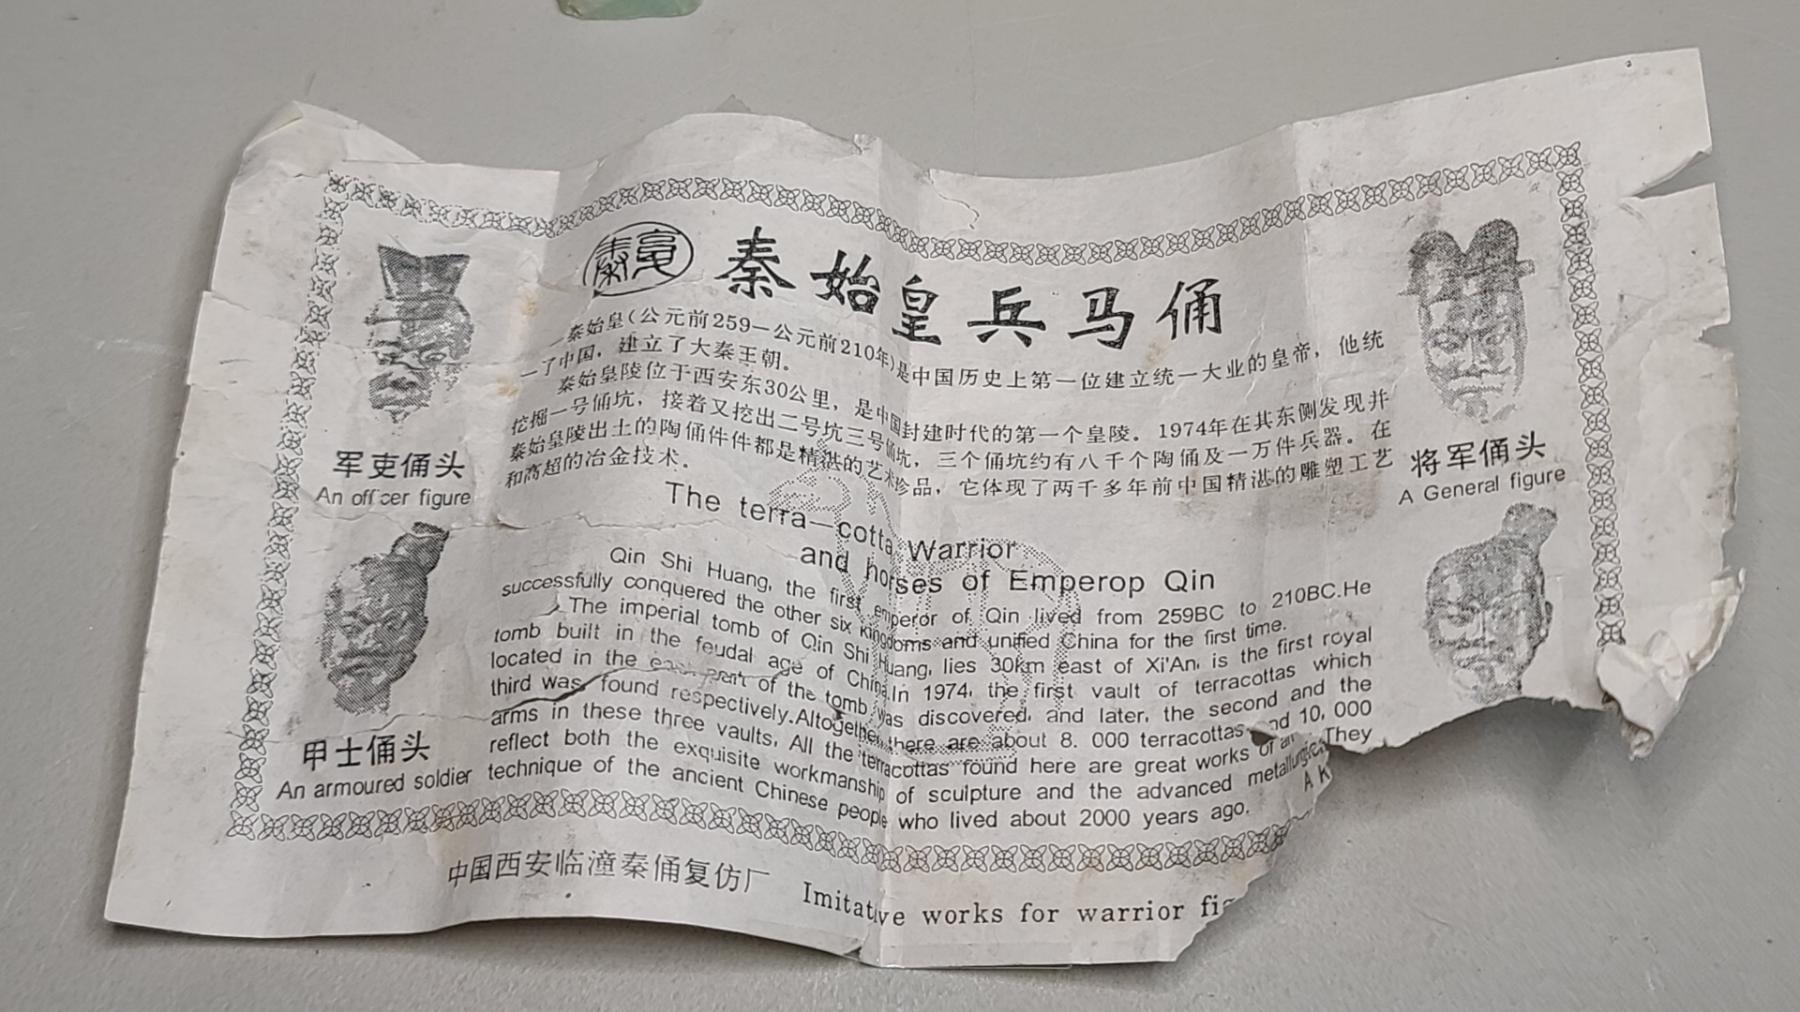 秦始皇兵马俑
秦始皇(公元前259—公元前210年)是中国历史上第一位建立统一大业的皇帝，他统
一了中国，建立了大秦王朝。
秦始皇陵位于西安东30公里，是中国封建时代的第一个皇陵。1974年在其东侧发现并
挖掘一号俑坑，接着又挖出二号坑三号俑坑，三个俑坑约有八千个陶俑及一万件兵器。在
秦始皇陵出土的陶俑件件都是精湛的艺术珍品，它体现了两千多年前中国精湛的雕塑工艺
和高超的冶金技术.
The terra—cotta Warrior
and horses of Emperop Qin
Qin Shi Huang, the first emperor of Qin lived from 259BC to 210BC.He
successfully conquered the other six kingdoms and unified China for the first time.
The imperial tomb of Qin Shi Huang, lies 30km east of Xi'An, is the first royal
tomb built in the feudal age of China.In 1974, the first vault of terracottas which
located in the east part of the tomb was discovered, and later, the second and the
third was found respectively.Altogether there are about 8. 000 terracottas and 10, 000
arms in these three vaults, All the terracottas found here are great works of They
reflect both the exquisite workmanship of sculpture and the advanced
technique of the ancient Chinese people who lived about 2000 years ago.
军吏俑头
An officer figure
甲士俑头
An armoured soldier
将军俑头
A General figure
中国西安临潼秦俑复仿厂 Imitative works for warrior